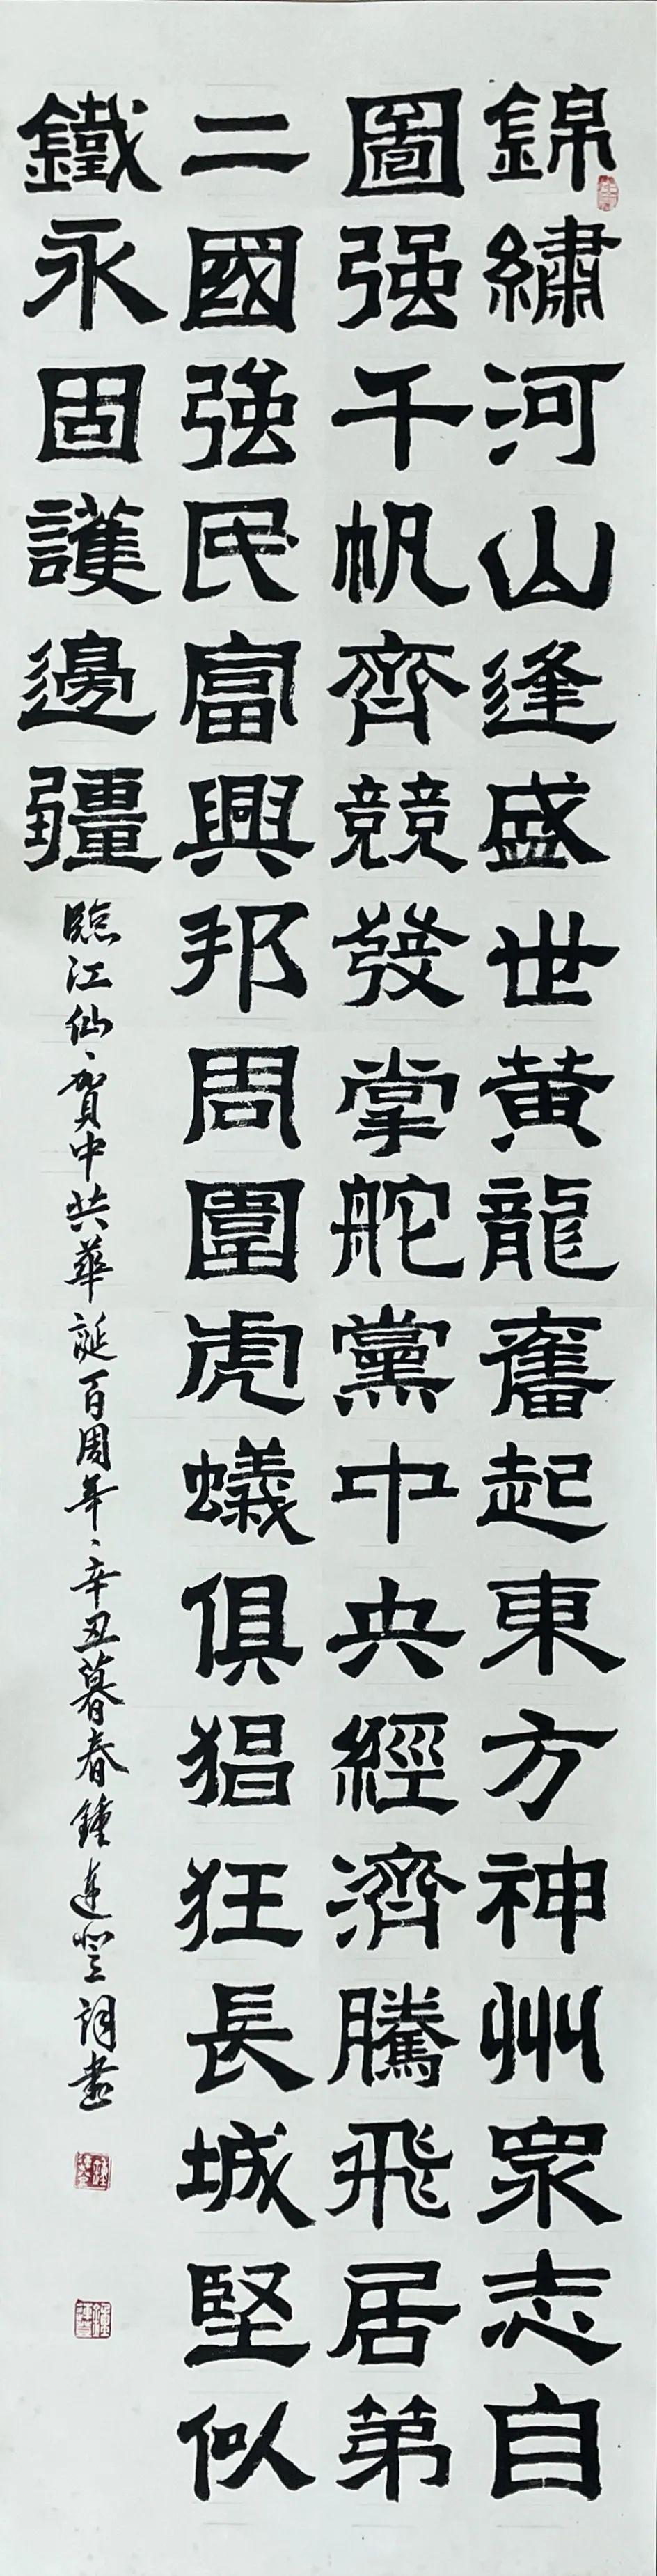 錦繡河山逢盛世黃龍奮起東方神州眾志自
圖强千帆齊競發掌舵黨中央經濟騰飛居第
二國強民富興邦周圍虎蟻俱猖狂長城堅似
鐵永固護邊疆
臨江仙、賀中共華誕百周年、辛丑暮春鍾達登詞書